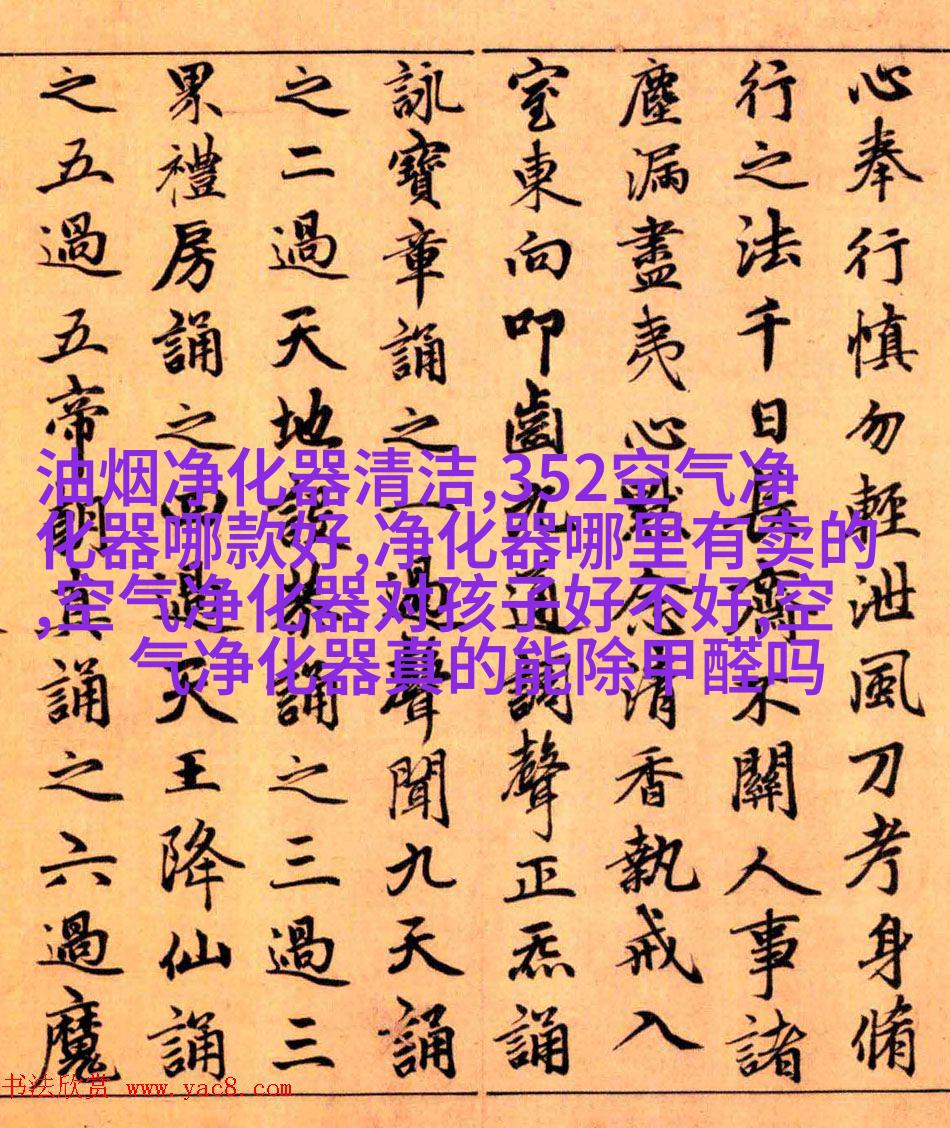 心奉行慎勿輕泄風刀考身脩
行之法千日長齋不關人事諸
塵漏盡夷心默念清香執戒入
室東向叩齒九通調聲正炁誦
詠寶章誦之一過聲聞九天誦
之二過天地設恭誦之三過三
界禮房誦之四過天王降仙誦
之五過五帝朝真誦之六過魔
油烟净化器清洁,352空气净
化器哪款好,净化器哪里有卖的
,空气净化器对孩子好不好,空
气净化器真的能除甲醛吗
书法欣赏 www.yac8.com